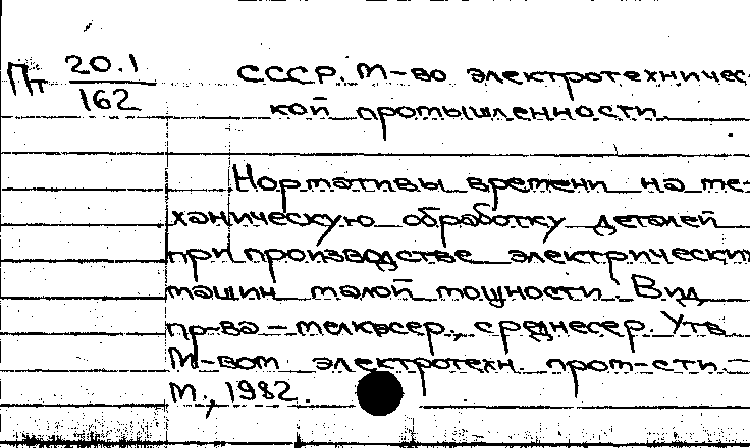 Пт 20.1/162
СССР. М-во электротехничес-
кой промышленности.
Нормативы времени на ме-
ханическую обработку деталей
при производстве электрических
машин малой мощности: Вид
пр-ва – мелкосер., среднесер. Утв.
М-вом электротехн. пром-сти. –
М., 1982.